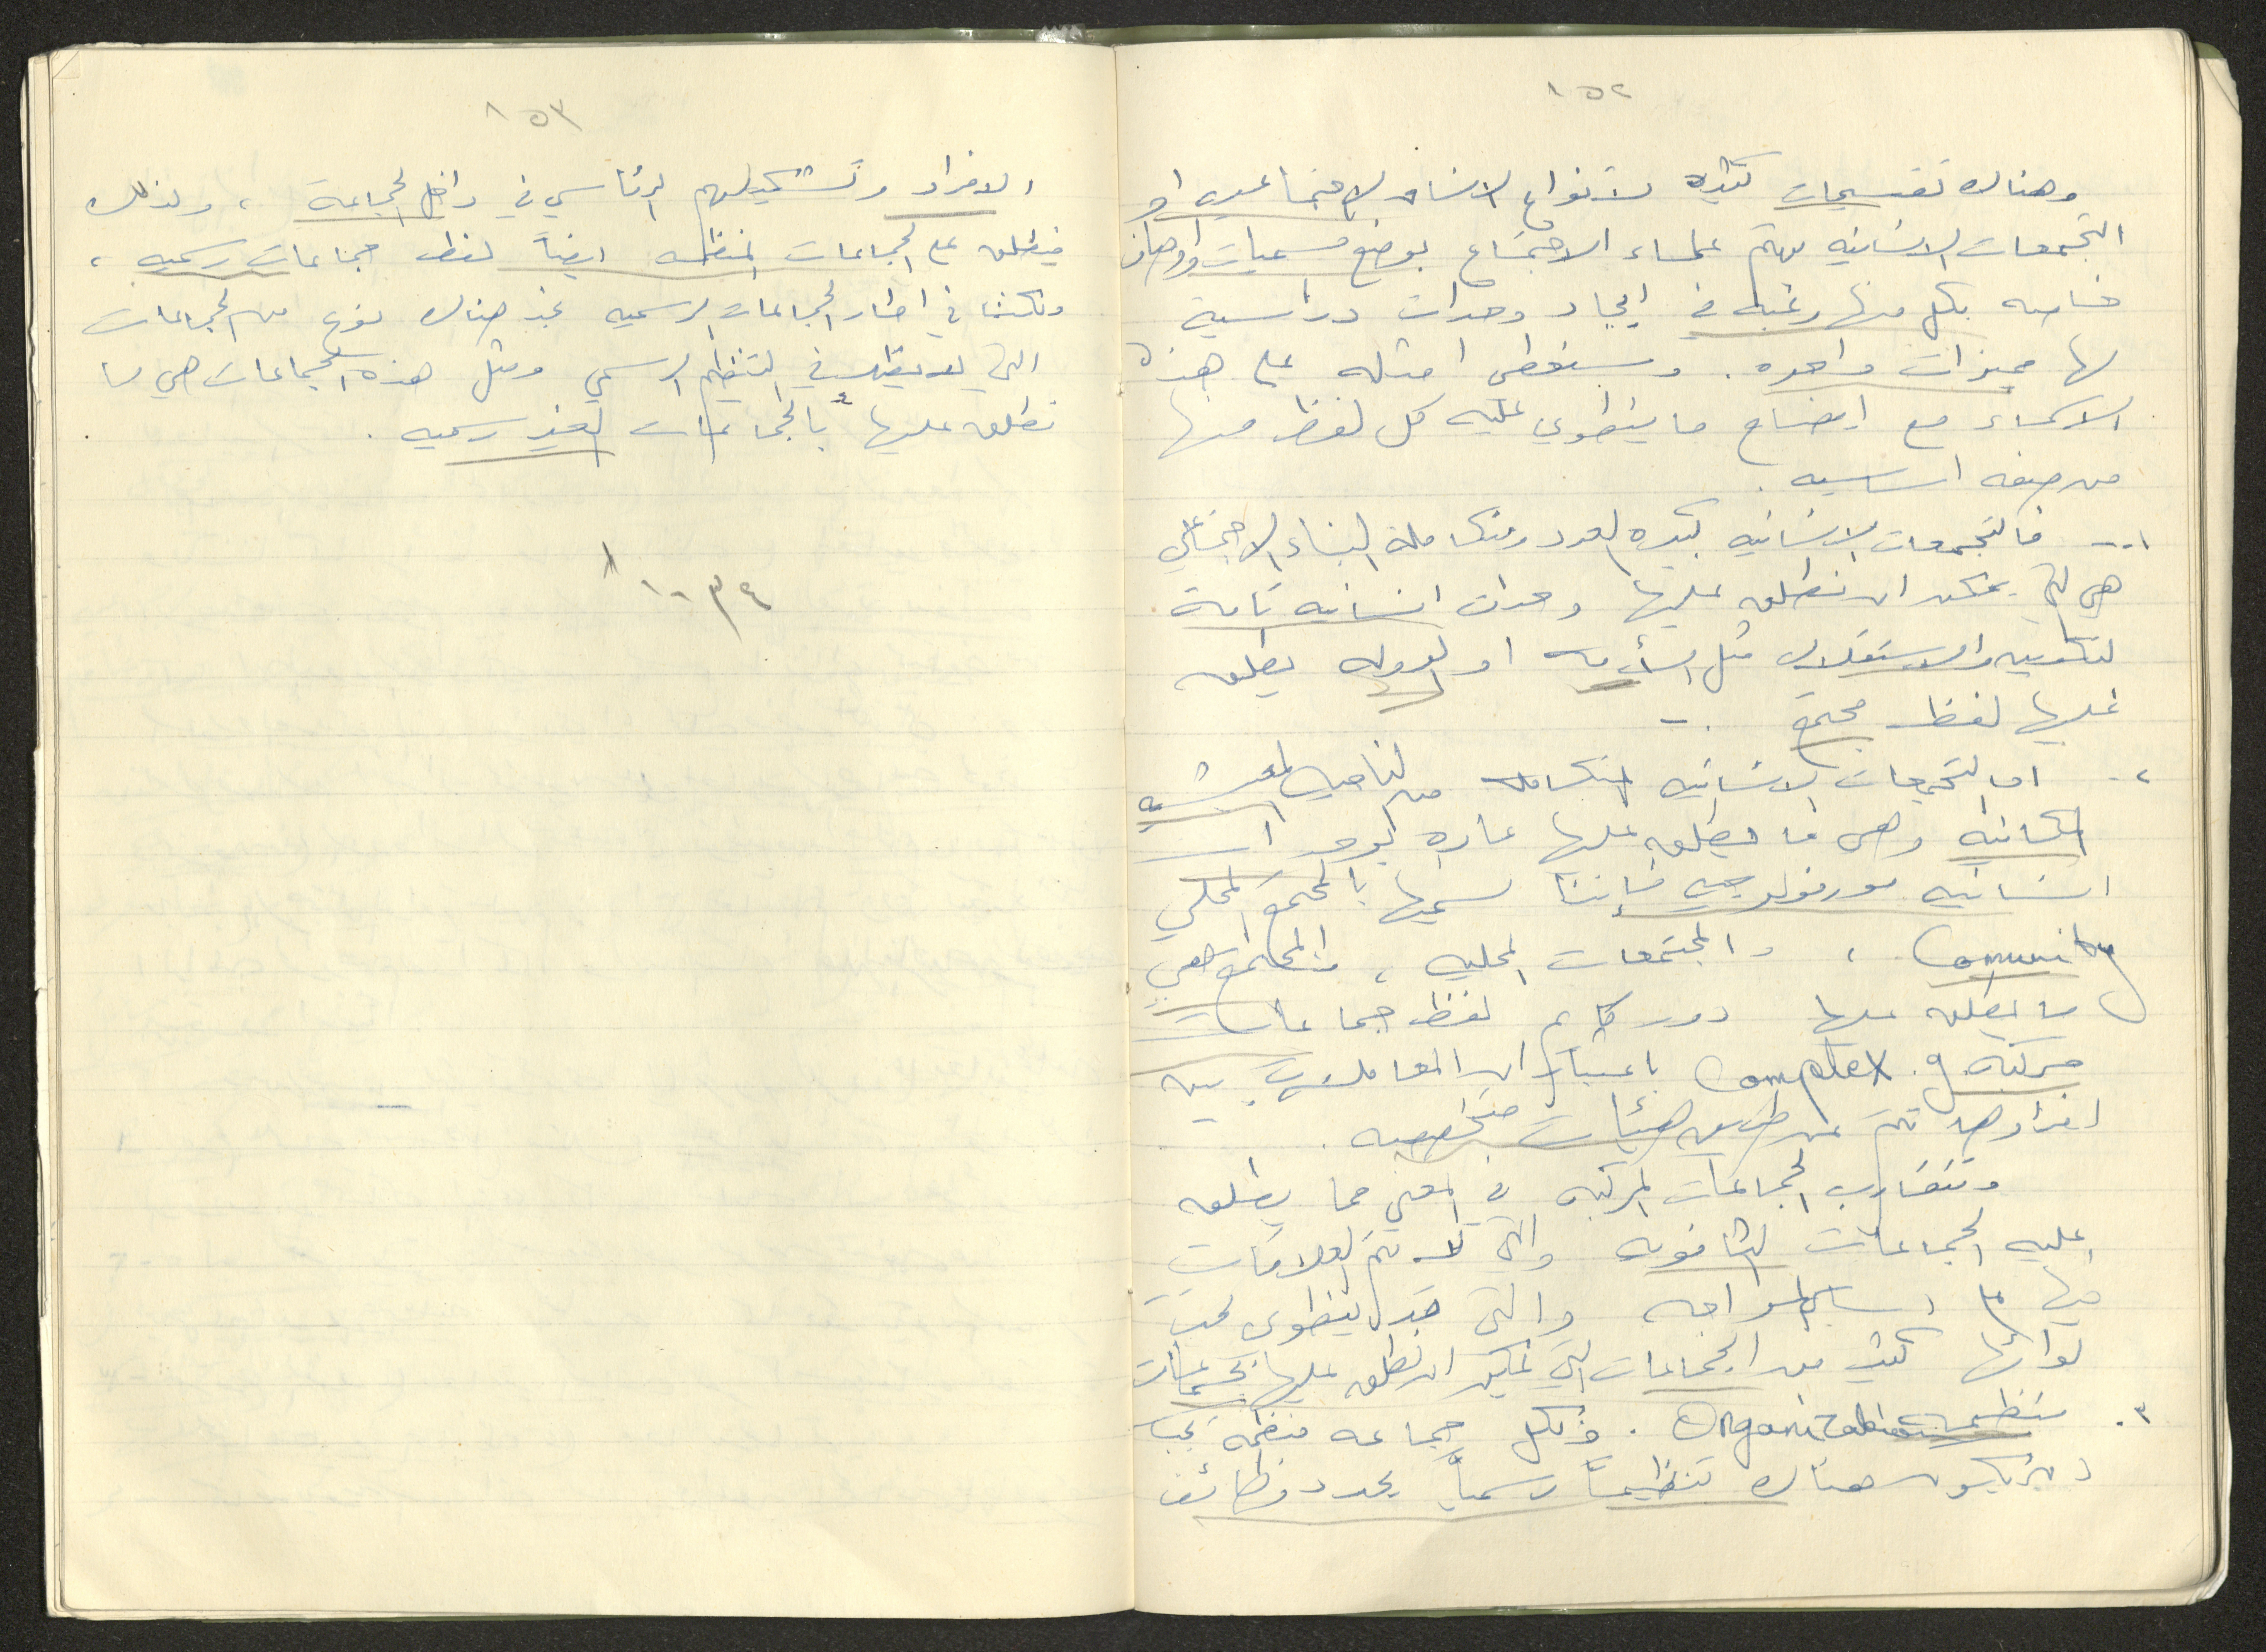 ١٥٢
وهناك تقسيمات كثيره لانواع الانساق الاجتماعيه او
التجمعات الانسانيه يهتم علماء الاجتماع بوضع مسميات واوصاف
خاصه بكل منها رغبه في ايجاد وحدات دراسية
لها مميزات واحده . وسنعطى امثله على هذه
الاسماء مع ايضاح ما ينطوي عليه كل لفظ منها
من صفه اساسيه .
١ -- فالتجمعات الانسانيه كبيره العدد ومتكاملة البناء الاجتماعي
هي التي يمكن ان نطلق عليها وحدات انسانيه تامة
التكوين والاستقلال مثل الأمه او الدوله يطلق
عليها لفظ مجتمع . -
٢ - اما التجمعات الانسانيه المتكامله من الناحيه المعيشيه
المكانيه وهى ما يطلق عليها عاده لوحدات
انسانيه مورفولوجيه فإننا نسميها بالمجتمع المحلي
Comunity ، والمجتمعات المحليه ، والمجتمع هي
ما يطلق عليها دوركايم لفظ جماعات
مركبه . Complex g باعتبار ان المعاملات بين
افرادها تتم عن طريق هيئات متخصصه .
وتتقارب الجماعات المركبه في المعنى مما يطلق
عليه الجماعات الثانويه والتي لا تتم العلاقات
فيها على اساس المواجه والتى قد ينطوى تحت
لوائها كثير من الجماعات التي يمكن ان نطلق عليها بجماعات
٣ . منظمه Organization . فكل جماعه منظمة يجب
ان يكون هناك تنظيماً رسمياً يحدد وظائف
١٥٣
الافراد وتشكيلهم الرئاسي في داخل الجماعة ، ولذلك
فيطلق على الجماعات المنظمه ايضاً لفظ جماعات رسميه ،
ولكننا في اطار الجماعات الرسميه نجد هناك نوع من الجماعات
التي لا يظهر في التنظيم الرسمي ومثل هذه الجماعات هي ما
نطلق عليها بالجماعات الغير رسميه .
١٠٣٤